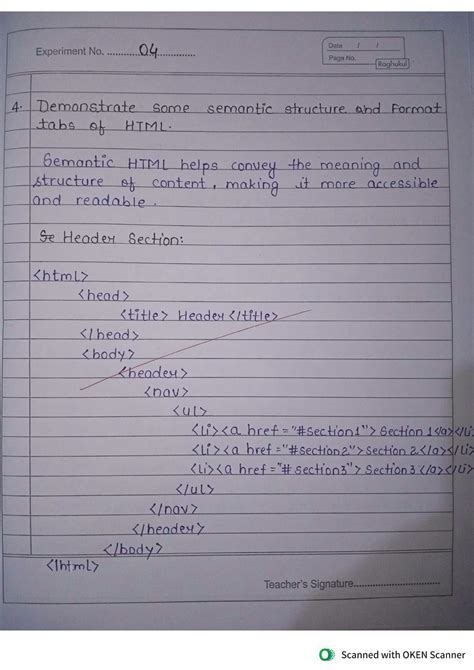 Experiment No. 04
Date / /
Page No.
Raghukul
4. Demonstrate some semantic structure and Format
tabs of HTML.
Semantic HTML helps convey the meaning and
structure of content, making it more accessible
and readable.
Header Section:
<html>
<head>
<title> Header </title>
</head>
<body>
<header>
<nav>
<ul>
<li><a href = "#section1"> Section 1</a></li>
<li><a href = "#section2"> Section 2</a></li>
<li><a href = "#section3"> Section 3</a></li>
</ul>
</nav>
</header>
</body>
</html>
Teacher's Signature
Scanned with OKEN Scanner